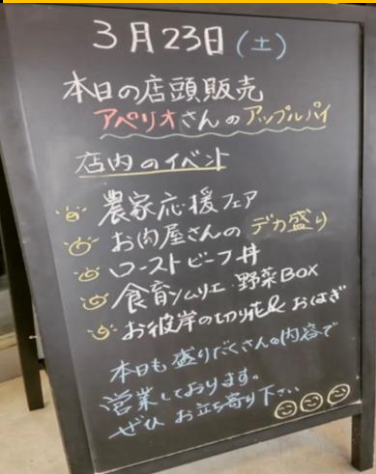 3月23日(土)
本日の店頭販売
アペリオさんのアップルパイ
店内のイベント
農家応援フェア
お肉屋さんのデカ盛り
ローストビーフ丼
食育ソムリエ 野菜BOX
お彼岸の切り花& おはぎ
本日も盛りだくさんの内容で
営業しております。
ぜひお立ち寄り下さい